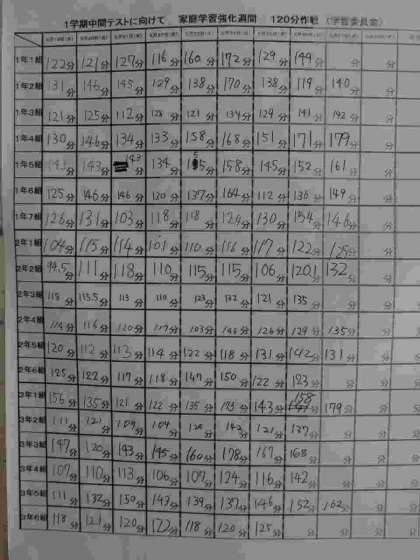 1学期中間テストに向けて 家庭学習強化週間 120分作戦 (学習委員会)
1年1組 122分 121分 127分 116分 160分 172分 129分 149分 分 分
1年2組 131分 146分 145分 129分 138分 170分 138分 119分 140分 分
1年3組 121分 125分 112分 128分 121分 134分 129分 141分 142分 分
1年4組 130分 146分 134分 133分 158分 168分 151分 171分 179分 分
1年5組 143分 143分 143分 134分 分 158分 145分 152分 161分 分
1年6組 125分 146分 146分 130分 137分 164分 112分 136分 149分 分
1年7組 126分 131分 103分 118分 118分 124分 130分 154分 146分 分
2年1組 104分 115分 114分 101分 110分 116分 117分 122分 125分 分
2年2組 94.5分 111分 118分 110分 115分 115分 106分 120.1分 132分 分
2年3組 118分 113.5分 113分 110分 123分 132分 121分 135分 分 分
2年4組 114分 116分 120分 117分 103分 143分 126分 129分 135分 分
2年5組 120分 112分 113分 114分 122分 118分 131分 142分 131分 分
2年6組 125分 122分 117分 118分 147分 150分 122分 123分 分 分
3年1組 156分 135分 121分 122分 135分 分 143分 158分 179分 分
3年2組 111分 121分 109分 109分 128分 142分 121分 137分 分 分
3年3組 147分 120分 143分 145分 160分 178分 167分 168分 分 分
3年4組 107分 110分 113分 106分 107分 134分 116分 142分 分 分
3年5組 111分 132分 150分 143分 139分 137分 146分 152分 162分 分
3年6組 118分 121分 120分 122分 118分 120分 125分 分 分 分